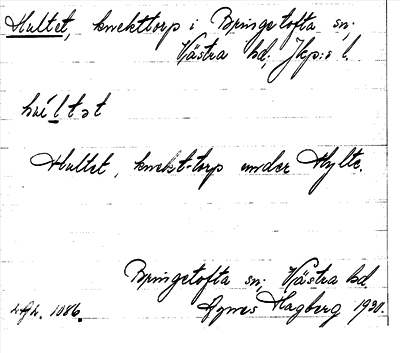 Hultet, knekttorp i Bringetofta sn;
Västra hd; Jkp:s l.
Hultet, knekt-torp under Hylte.
Bringetofta sn; Västra hd.
Agnes Hagberg 1930.
1086.